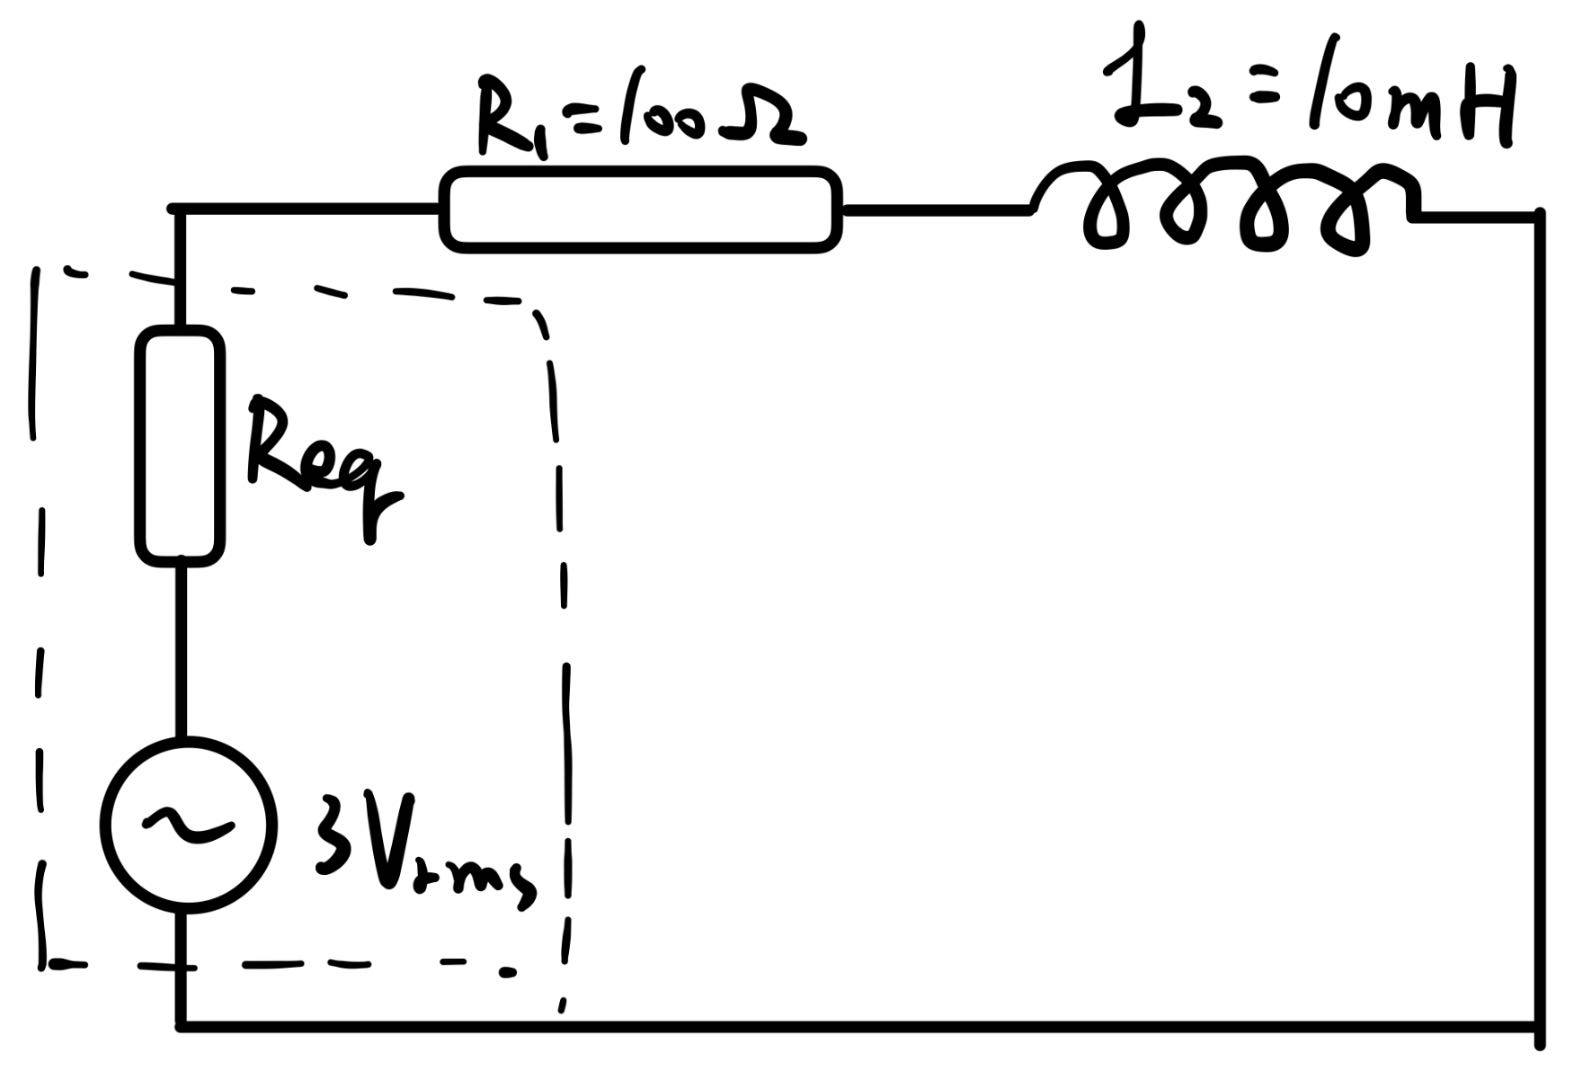 R₁=100Ω
L₂=10mH
Req
3Vrms